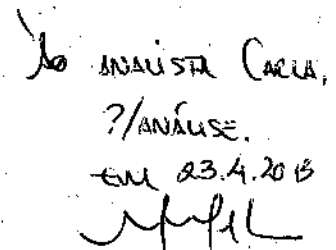 Ao analista Carla,
P/análise.
Em 23.4.2013